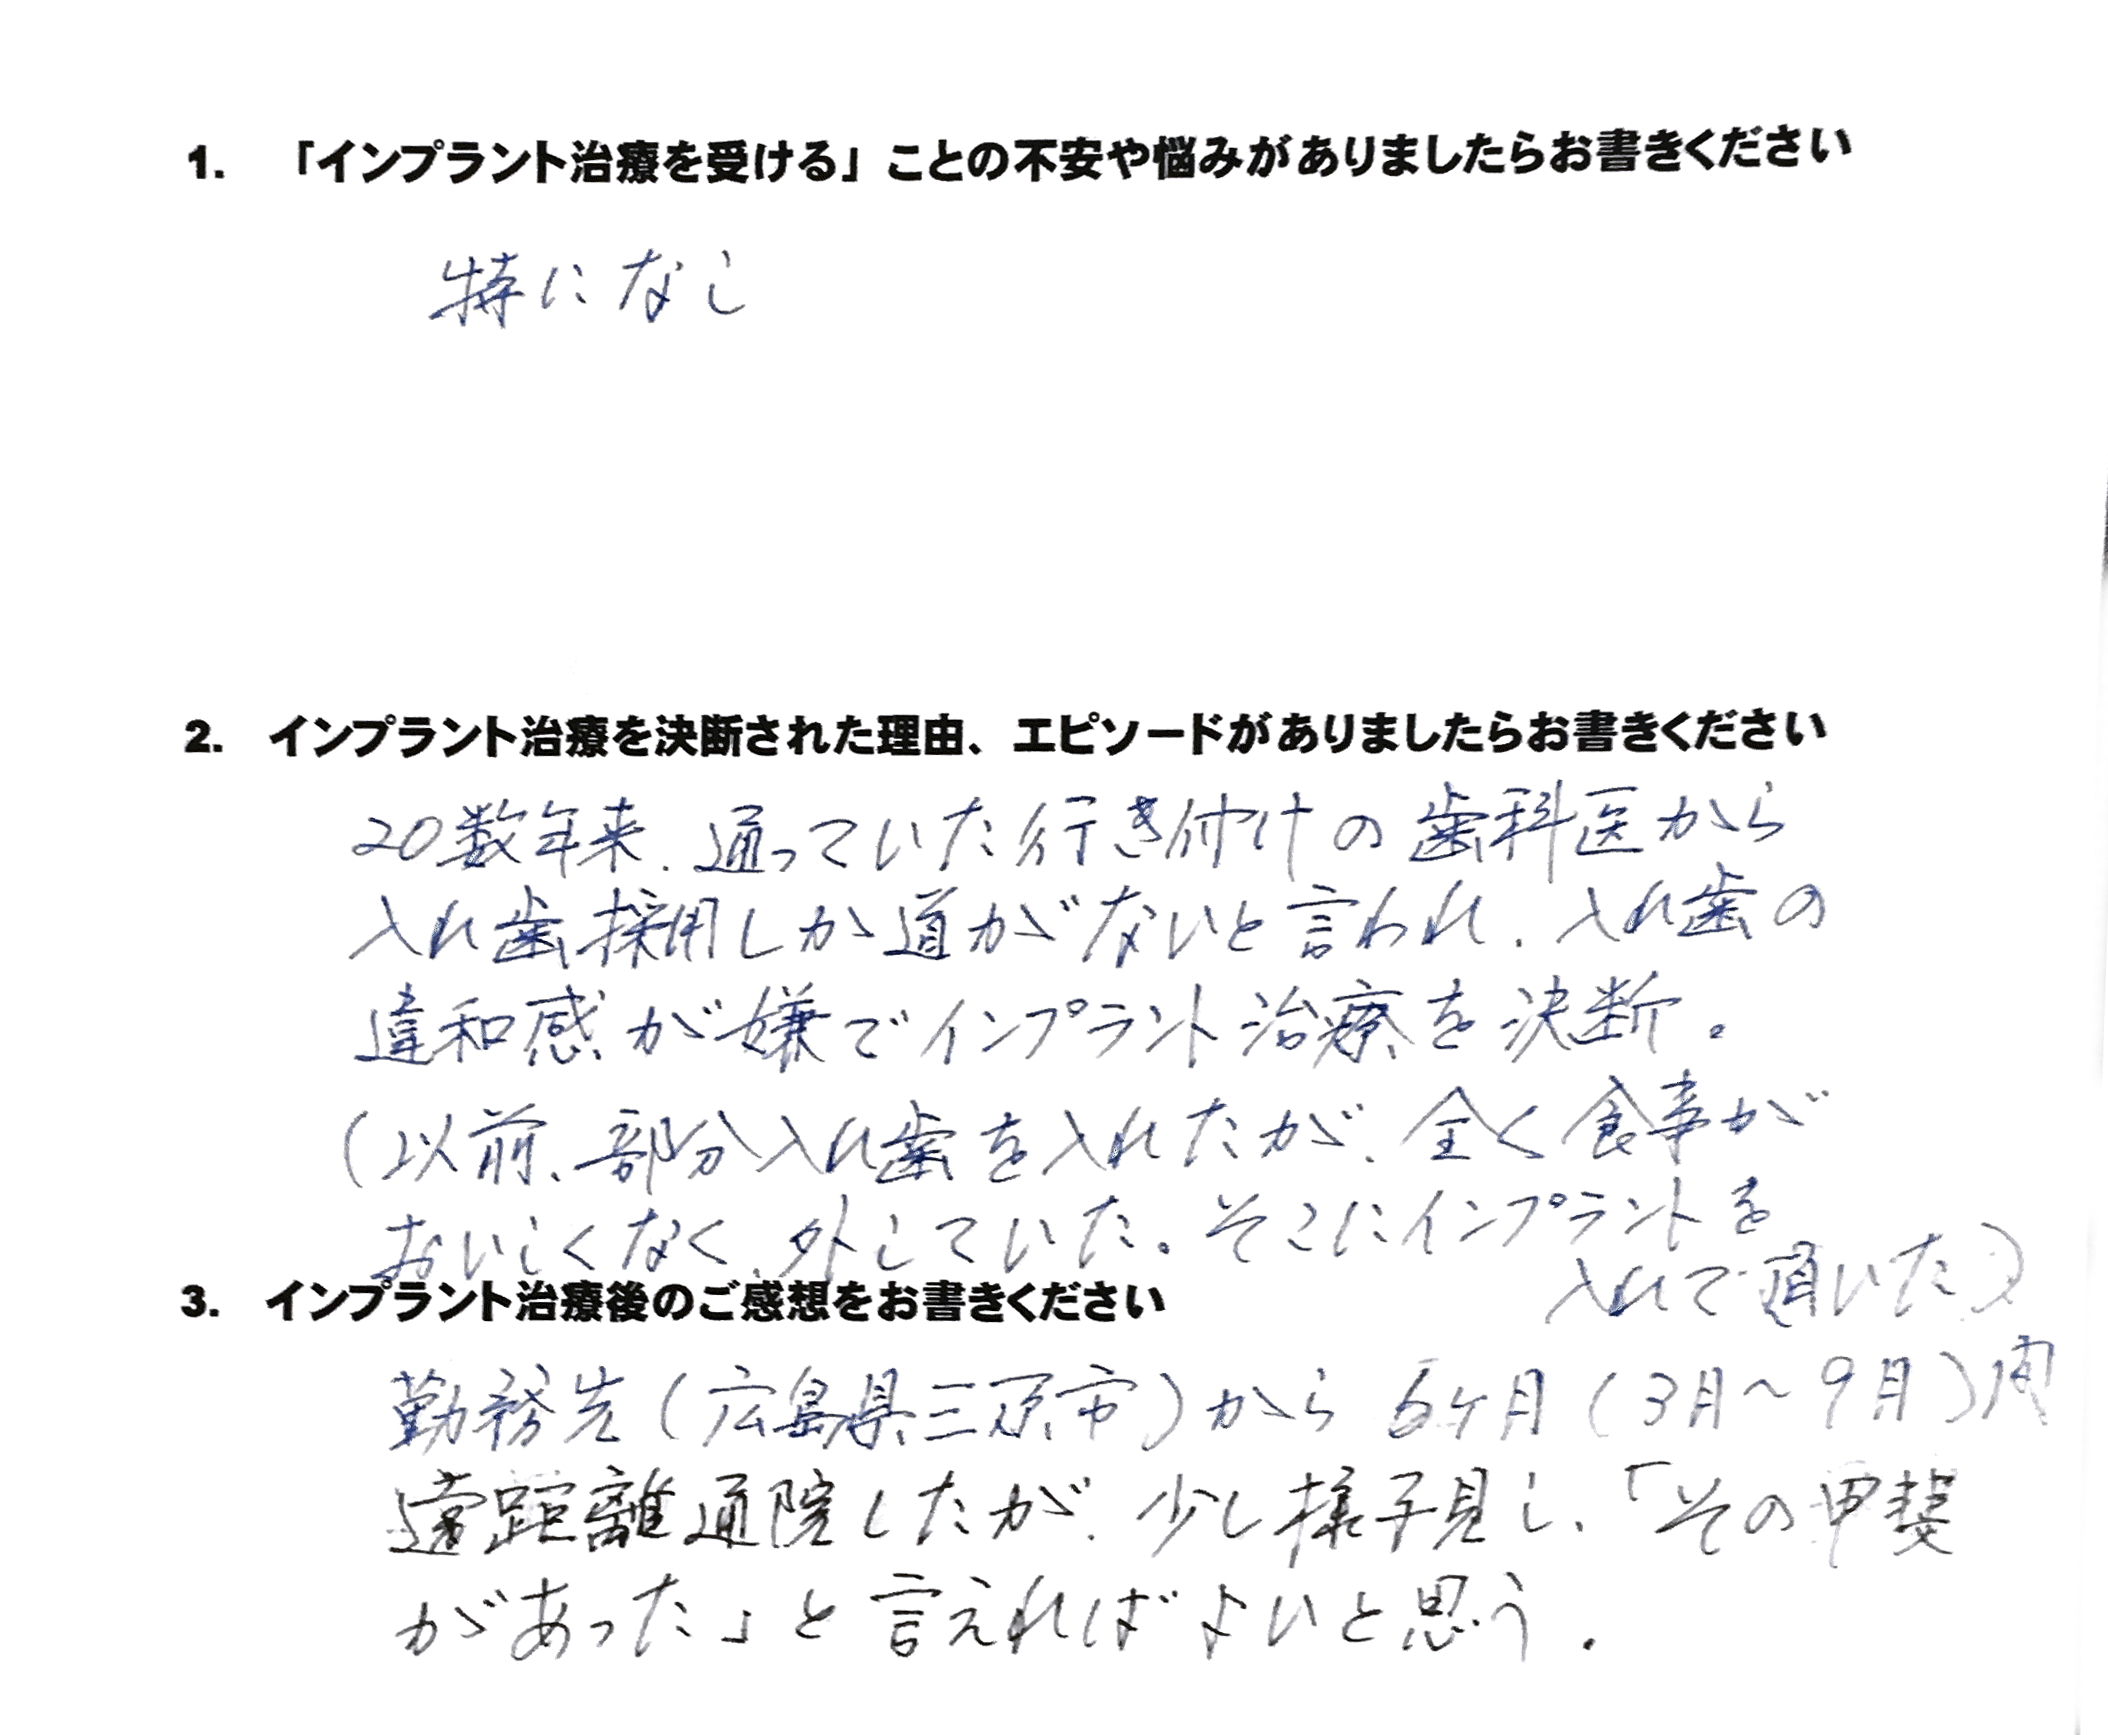 1. 「インプラント治療を受ける」ことの不安や悩みがありましたらお書きください
特になし
2. インプラント治療を決断された理由、エピソードがありましたらお書きください
20数年来、通っていた行き付けの歯科医から
入れ歯採用しか道がないと言われ、入れ歯の
違和感が嫌でインプラント治療を決断。
(以前、部分入れ歯を入れたが、全く食事が
おいしくなく、外していた。そこにインプラントを
入れて頂いた)
3. インプラント治療後のご感想をお書きください
勤務先(広島県三原市)から6ヶ月(3月～9月)間
遠距離通院したが、少し様子見し、「その甲斐
があった」と言えればよいと思う。